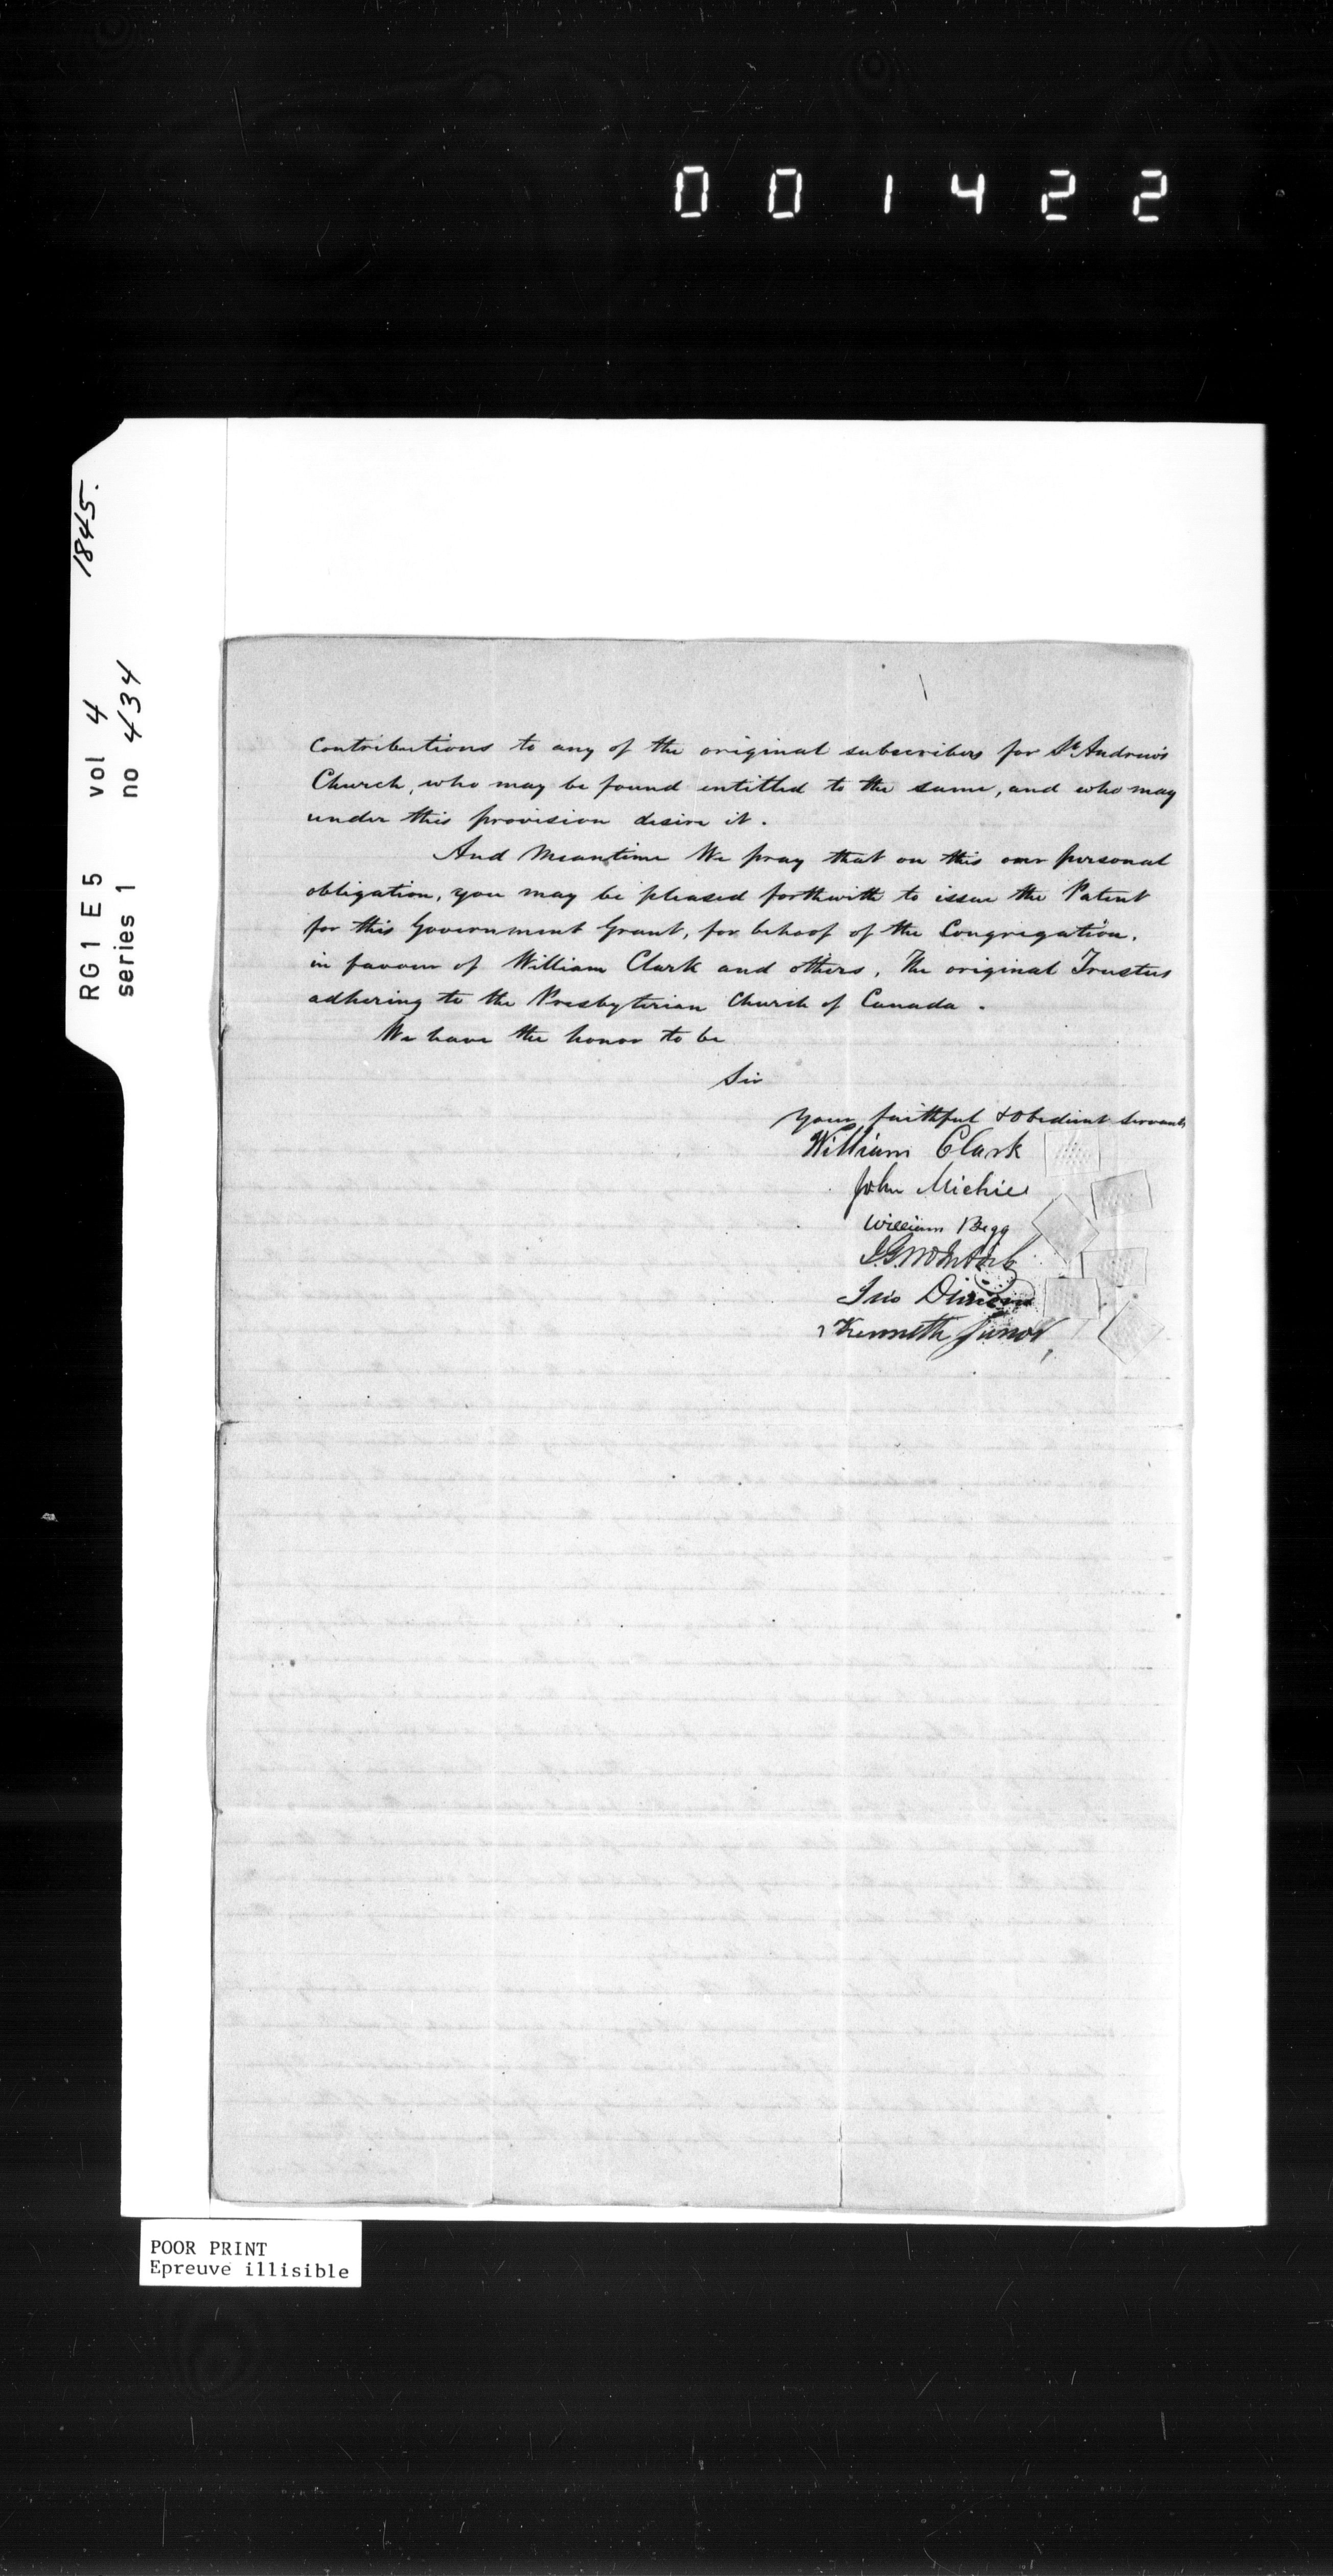 001422
1845.
RG1 E5 vol 4
series 1 no 434
Contributions to any of the original subscribers for St Andrew's
Church, who may be found entitled to the same, and who may
under this provision desire it.
And Meantime We pray that on this our personal
obligation, you may be pleased forthwith to issue the Patent
for this Government Grant, for behoof of the Congregation,
in favour of William Clark and others, The original Trustees
adhering to the Presbyterian Church of Canada.
We have the honor to be
Sir
Your faithful & Obedient Servants
William Clark
John Michie
William Begg
Jno Duncan
Kenneth Junor
POOR PRINT
Epreuve illisible